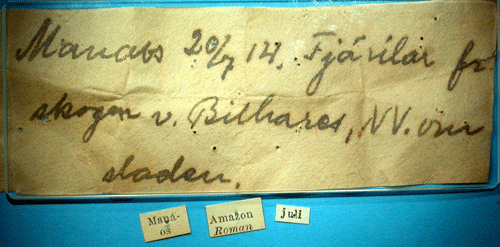 Manaos 20/7 14. Fjärilar fr
skogen v. Bilhares, NV. om
staden.
Manáos
Amazon
Roman
juli